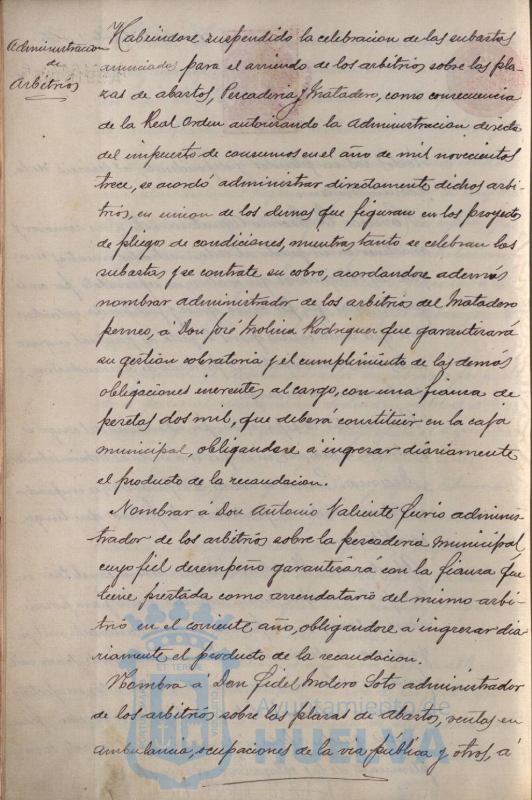 Administracion
de
Arbitrios
Habiendose suspendido la celebracion de las subastas
anunciadas para el arriendo de los arbitrios sobre las pla
zas de abastos, Pescaderia y Matadero, como consecuencia
de la Real Orden autorizando la administracion directa
del impuesto de consumos en el año de mil novecientos
trece, se acordó administrar directamente dichos arbi
trios, en union de los demas que figuran en los proyectos
de pliegos de condiciones, mientras tanto se celebran las
subastas y se contrate su cobro, acordandose además
nombrar administrador de los arbitrios del Matadero
perneo, á Don José Molina Rodriguez que garantizará
su gestion cobratoria y el cumplimiento de las demas
obligaciones inerentes al cargo, con una fianza de
pesetas dos mil, que deberá constituir en la caja
municipal, obligandose á ingresar diariamente
el producto de la recaudacion.
Nombrar á Don Antonio Valiente Jurio adminis
trador de los arbitrios sobre la pescaderia municipal
cuyo fiel desempeño garantizará con la fianza que
tiene prestada como arrendatario del mismo arbi
trio en el corriente año, obligandose á ingresar dia
riamente el producto de la recaudacion.
Nombra á Don Fidel Molero Soto administrador
de los arbitrios sobre las plazas de Abasto, ventas en
ambulancia, ocupaciones de la via pública y otros, á
Ayuntamiento de
HUELVA